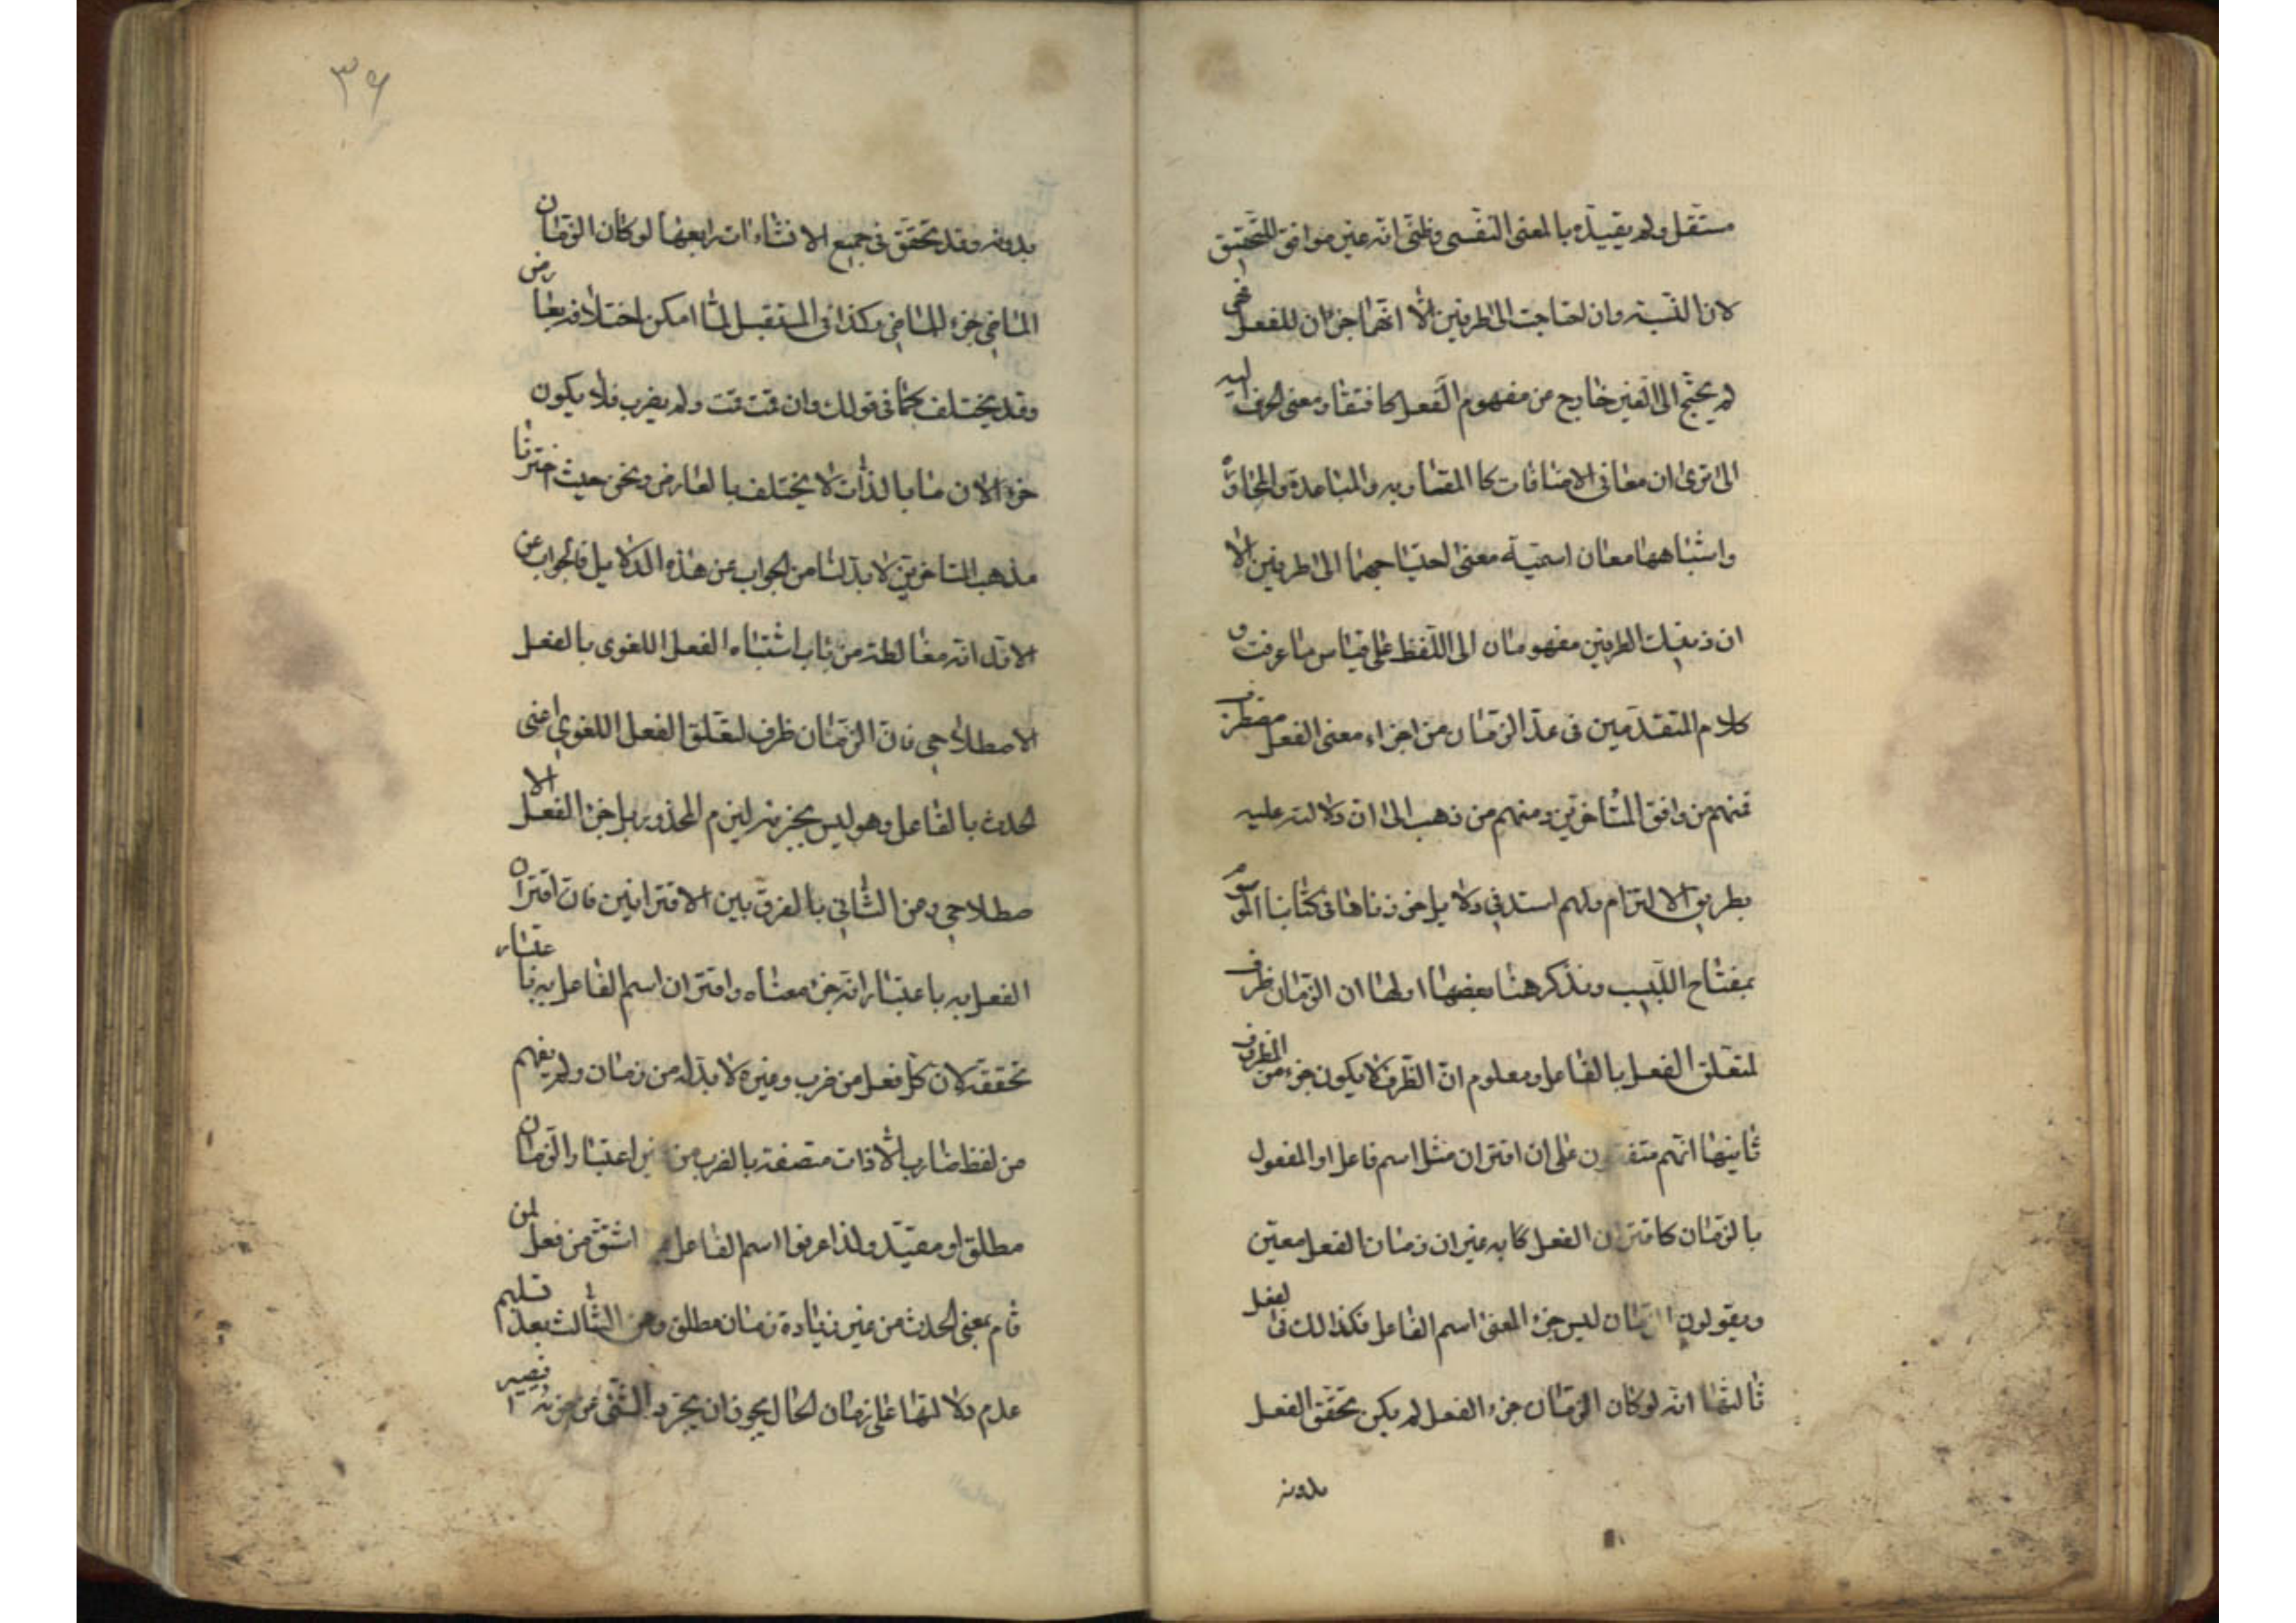 مستقل ولم يقيده بالمعنى النفسى وظنى انه غير موافق للتحقيق
لان النسبة وان احتاجت الى طرفين الا انهما جزءان للفعل فهى
لم يحتج الى الغير خارج من مفهوم الفعل كافتقار معنى الحرف اليه
الى ترى ان معانى الاضافات كالمقاربه والمباعدة والمحاذاة
واشباهها معان اسمية معنى احتياجها الى طرفين الا
ان الطرفين مفهومان الى اللفظ على قياس ما عرفت و
كلام المتقدمين فى عد الزمان من اجزاء معنى الفعل مضطرب
فمنهم من وافق المتاخرين ومنهم من ذهب الى ان دلالته عليه
بطريق الالتزام ولهم استدنى دلايل اخر ذكرناها فى كتابنا الموسوم
بمفتاح اللبيب ونذكر هنا بعضها اولها ان الزمان ظرف
لتعلق الفعل بالفاعل ومعلوم ان الظرف لا يكون جزء من المظروف
ثانيها انهم متفقون على ان اقتران مثل اسم فاعل او المفعول
بالزمان كاقتران الفعل كا به غير ان زمان الفعل معين
ويقولون الزمان ليس جزء المعنى اسم الفاعل فكذالك فى الفعل
ثالثها انه لوكان الزمان جزء الفعل لم يكن تحقق الفعل
بدونه
٣٩
بدونه وقد تحقق فى جميع الانشاءات رابعها لوكان الزمان
الماضى جزء للماضى وكذا فى المستقبل لما امكن اختلافه بعارض
وقد يختلف كما فى قولك وان قمت قمت ولم يضرب فلا يكون
جزء الان ما بالذات لا يختلف بالعارض ونحن حيث اخترنا
مذهب المتاخرين لا بد لنا من الجواب عن هذه الدلايل فالجواب عن
الاول انه مغالطة من باب اشتباه الفعل اللغوى بالفعل
الاصطلاحى فان الزمان ظرف لتعلق الفعل اللغوى اعنى
الحدث بالفاعل وهو ليس بجزئه ليلزم المحذور بل جزء الفعل الا
صطلاحى وعن الثانى بالفرق بين الاقترانين فان اقتران
الفعل به باعتبار انه جزء معناه واقتران اسم الفاعل به باعتبار
تحققه لان كل فعل من ضرب وغيره لا بد له من زمان ولم يفهم
من لفظ ضارب الا ذات متصفة بالضرب من غير اعتبار الزمان
مطلق او مقيد ولذا عرفوا اسم الفاعل اشتق من فعل لمن
قام بمعنى الحدث من غير زيادة زمان مطلق وعن الثالث بعد تسليم
عدم دلالتها على زمان الحال يجوز ان يجرد الشئ عن جزئه فيصير